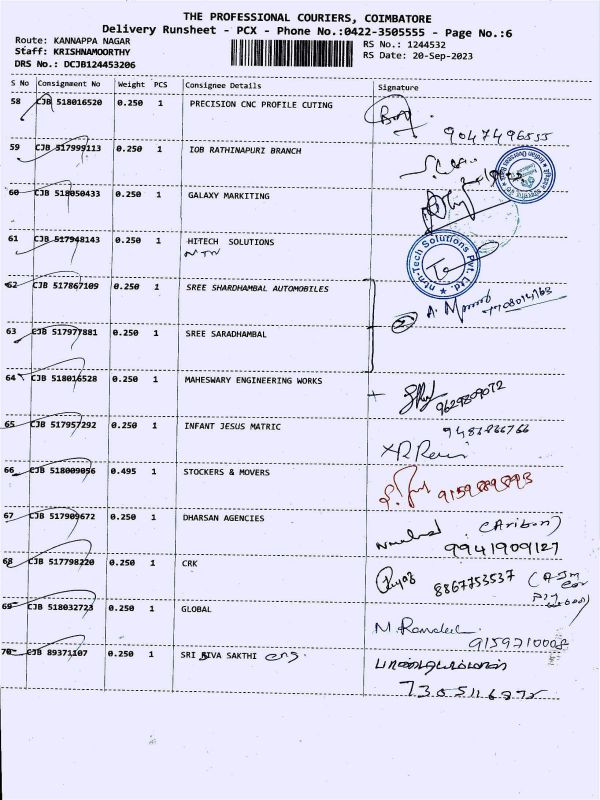 THE PROFESSIONAL COURIERS, COIMBATORE
Delivery Runsheet - PCX - Phone No.:0422-3505555 - Page No.:6
Route: KANNAPPA NAGAR
RS No.: 1244532
Staff: KRISHNAMOORTHY
RS Date: 20-Sep-2023
DRS No.: DCJB124453206
S No Consignment No Weight PCS Consignee Details Signature
58 CJB 518016520 0.250 1 PRECISION CNC PROFILE CUTING
9047496555
59 CJB 517999113 0.250 1 IOB RATHINAPURI BRANCH
60 CJB 518050433 0.250 1 GALAXY MARKITING
61 CJB 517948143 0.250 1 HITECH SOLUTIONS
NTN
ntn-Tech Solutions Pvt. Ltd.
62 CJB 517867109 0.250 1 SREE SHARDHAMBAL AUTOMOBILES
63 CJB 517977881 0.250 1 SREE SARADHAMBAL
2
64 CJB 518016528 0.250 1 MAHESWARY ENGINEERING WORKS
9629809072
65 CJB 517957292 0.250 1 INFANT JESUS MATRIC
66 CJB 518009056 0.495 1 STOCKERS & MOVERS
67 CJB 517909672 0.250 1 DHARSAN AGENCIES
9941909127
68 CJB 517798220 0.250 1 CRK
8867753537
69 CJB 518032723 0.250 1 GLOBAL
9159710008
70 CJB 89371107 0.250 1 SRI SIVA SAKTHI eng.